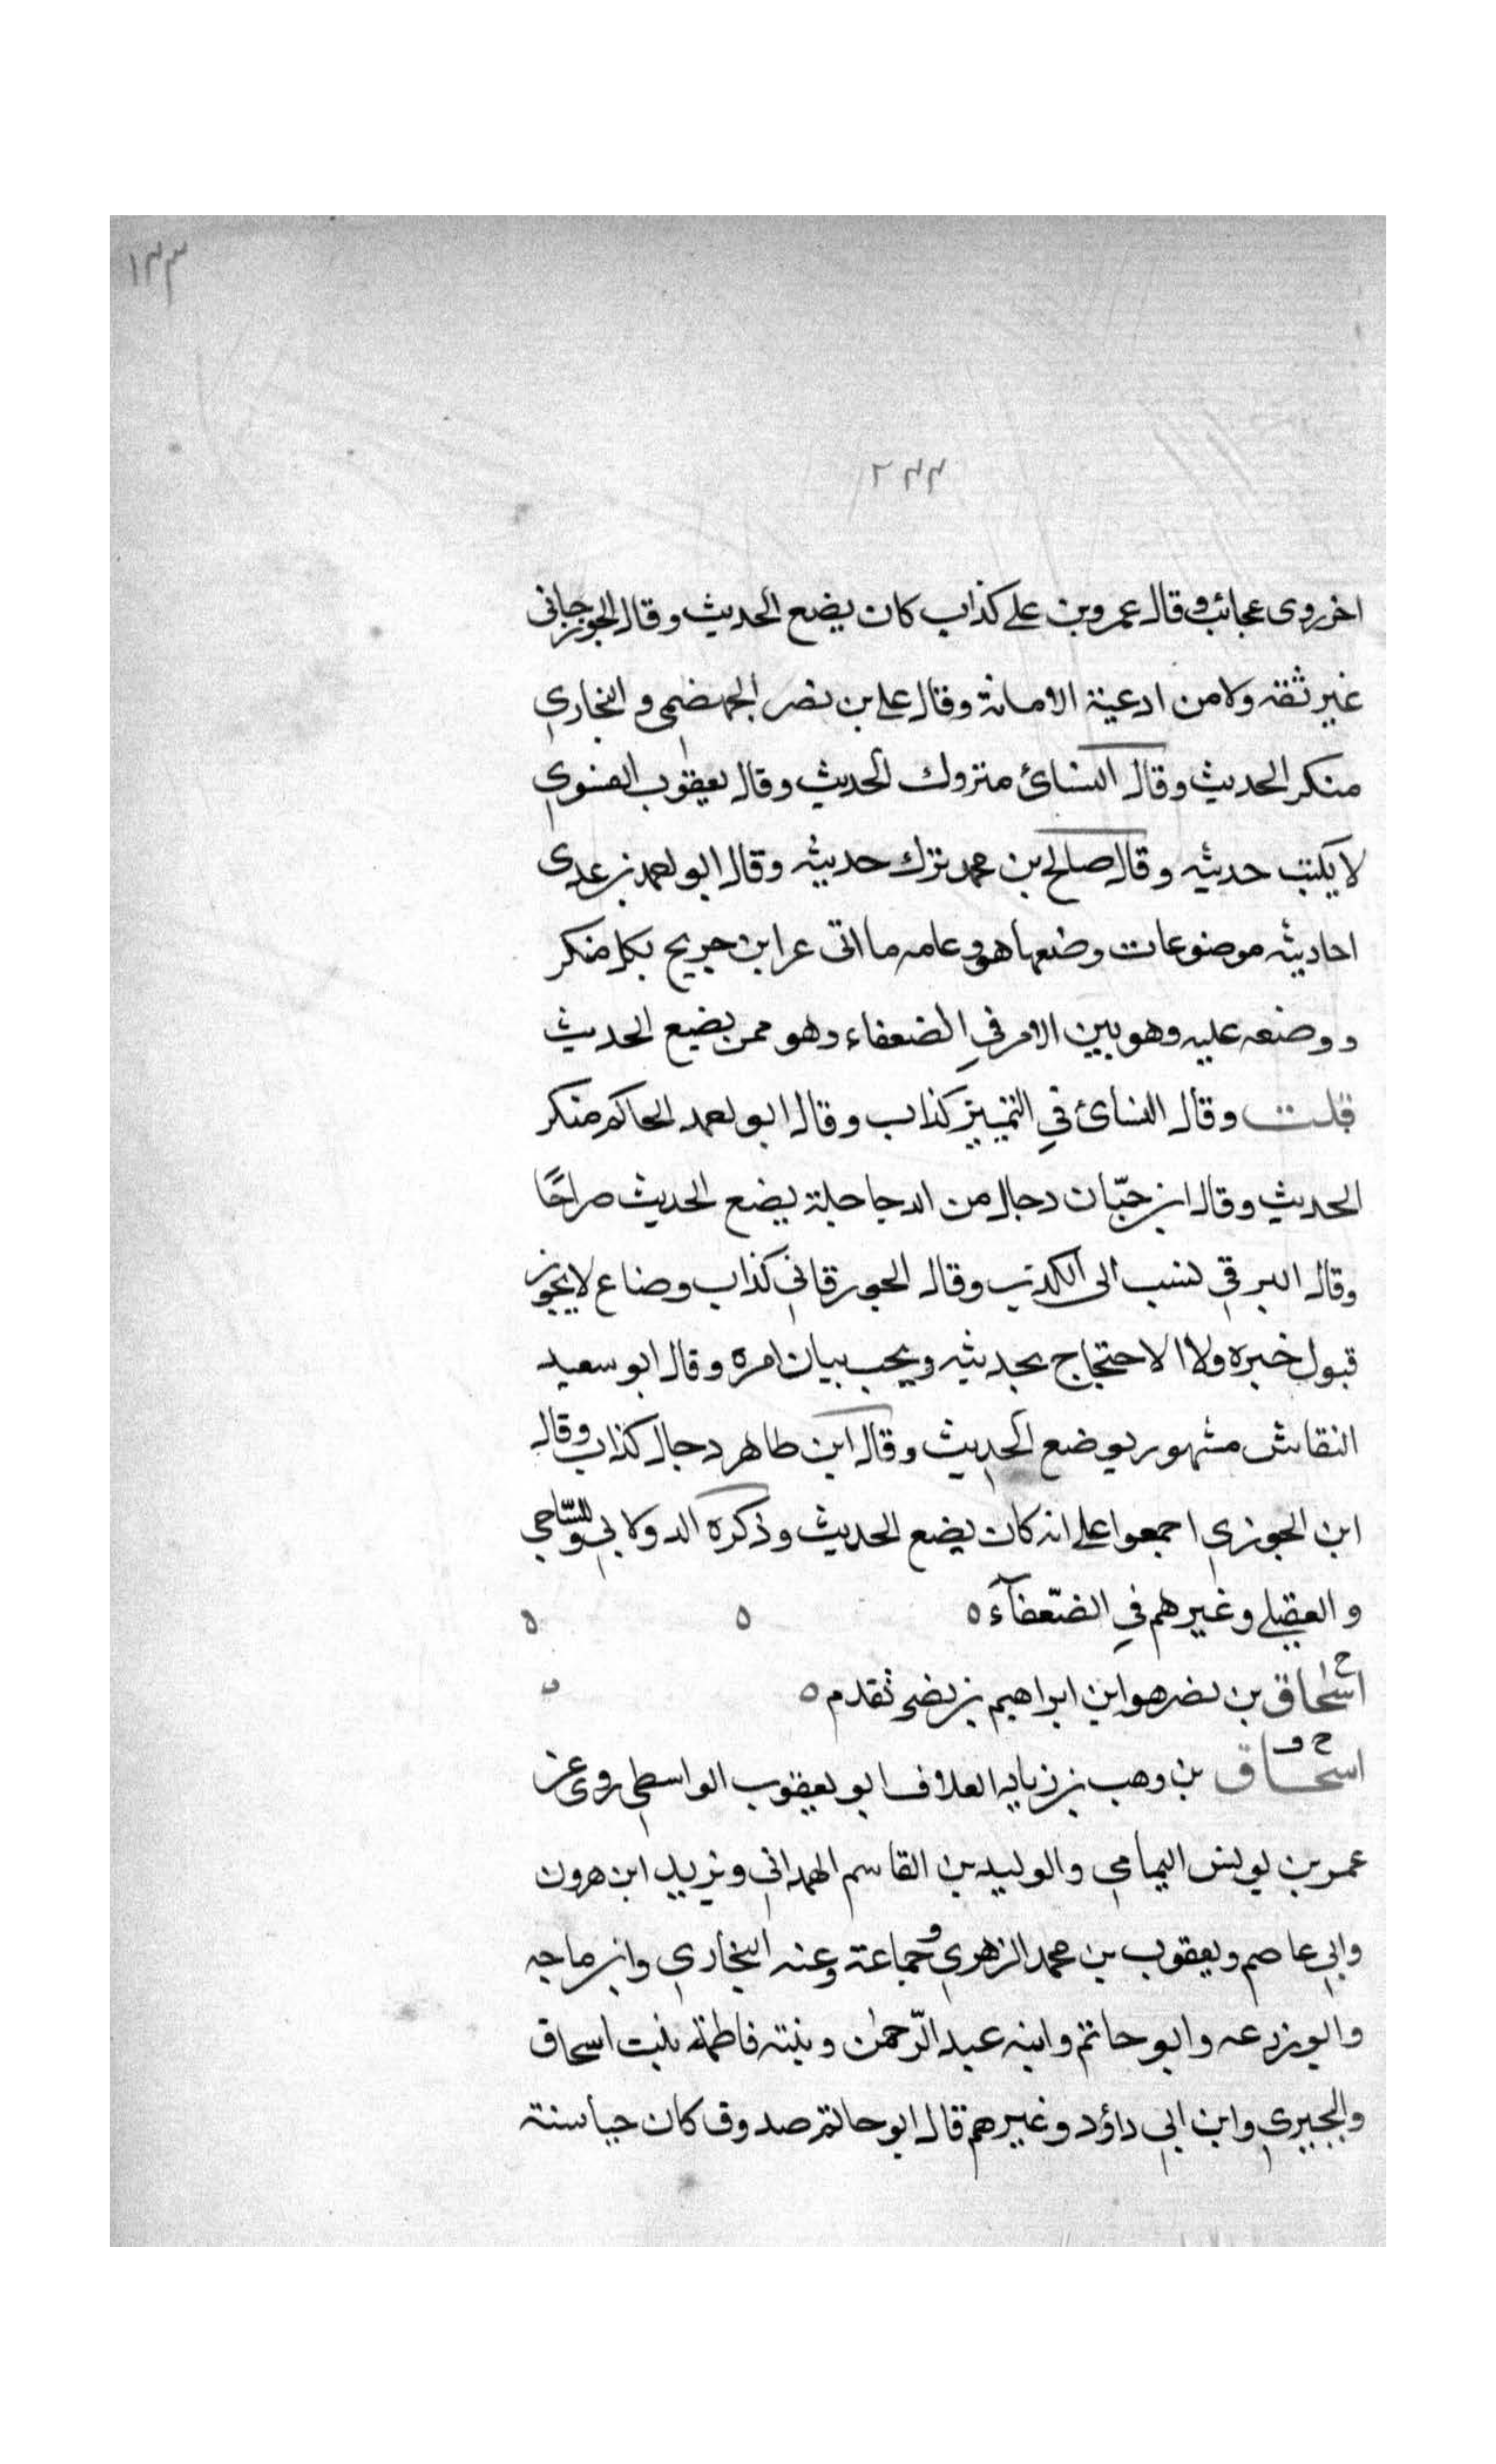 ١٣٣
٢٤٤
اخر روى عجائب وقال عمرو بن علي كذاب كان يضع الحديث وقال الجوزجاني
غير ثقة ولا من ادعية الامانة وقال علي بن نصر الجهضمي و البخاري
منكر الحديث وقال النسائ متروك الحديث وقال يعقوب الفسوي
لا يكتب حديثه وقال صالح بن محمد ترك حديثه وقال ابو احمد بن عدى
احاديثه موضوعات وضعها هو وعامه ما اتى عن ابن جريج بكل منكر
ووضعه عليه وهو بين الامر في الضعفاء وهو ممن يضع الحديث
قلت وقال النسائ في التمييز كذاب وقال ابو احمد الحاكم منكر
الحديث وقال ابن حبّان دجال من الدجاجلة يضع الحديث صراحًا
وقال البرقي نسب الى الكذب وقال الجورقاني كذاب وضاع لا يجوز
قبول خبره ولا الاحتجاج بحديثه ويجب بيان امره وقال ابو سعيد
النقاش مشهور بوضع الحديث وقال ابن طاهر دجال كذاب وقال
ابن الجوزي اجمعوا على انه كان يضع الحديث وذكره الدولابي والسّاجي
و العقيلي وغيرهم في الضّعفآء ٥ ٥ ٥
اسحاق بن نصر هو ابن ابراهيم بن نصر تقدم ٥
ح ق
اسحاق بن وهب بن زياد العلاف ابو يعقوب الواسطي روى عن
عمر بن يونس اليمامي والوليد بن القاسم الهمداني ويزيد ابن هرون
وابي عاصم ويعقوب بن محمد الزهري وجماعة وعنه البخاري وابن ماجه
وابو زرعه وابو حاتم وابنه عبد الرّحمن وبنته فاطمة بنت اسحاق
والبجيري وابن ابي داؤد وغيرهم قال ابو حاتم صدوق كان حيا سنة